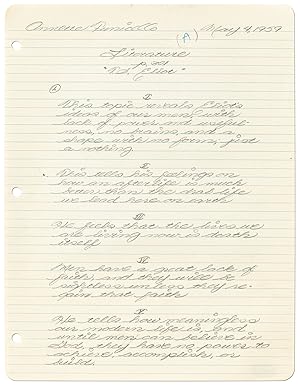 Annette May 4, 1959
(A)
Literature
p. 201
"T.S. Eliot"
I
This topic reveals Eliot's
ideas of our men with
lack of power and useful-
ness, no brains, and a
shape with no form, just
a nothing
II
This tells his feelings on
how an after life is much
better than the real life
we lead here on earth
III
He feels that the lives we
are living now is death
itself
IV
Men have a great lack of
faith and they will be
sightless unless they re-
gain that faith
V
He tells how meaningless
our modern life is, and
until men can believe in
God, they have no power to
achieve, accomplish, or
build.